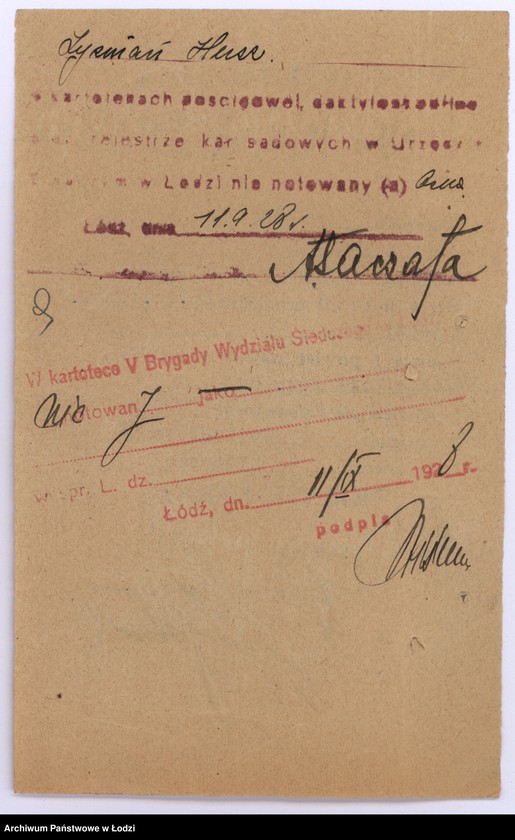 Hersz.
w kartotekach pościgowej, daktyloskopijne
rejestrze kar sadowych w Urzędz
w Łodzi nie notowany (a)
Łódź, dnia 11.9.28 r.
W kartotece V Brygady Wydziału Śledczego
nie notowan jako
w spr. L. dz.
Łódź, dn. 11/IX 1928 r.
podpis
Archiwum Państwowe w Łodzi